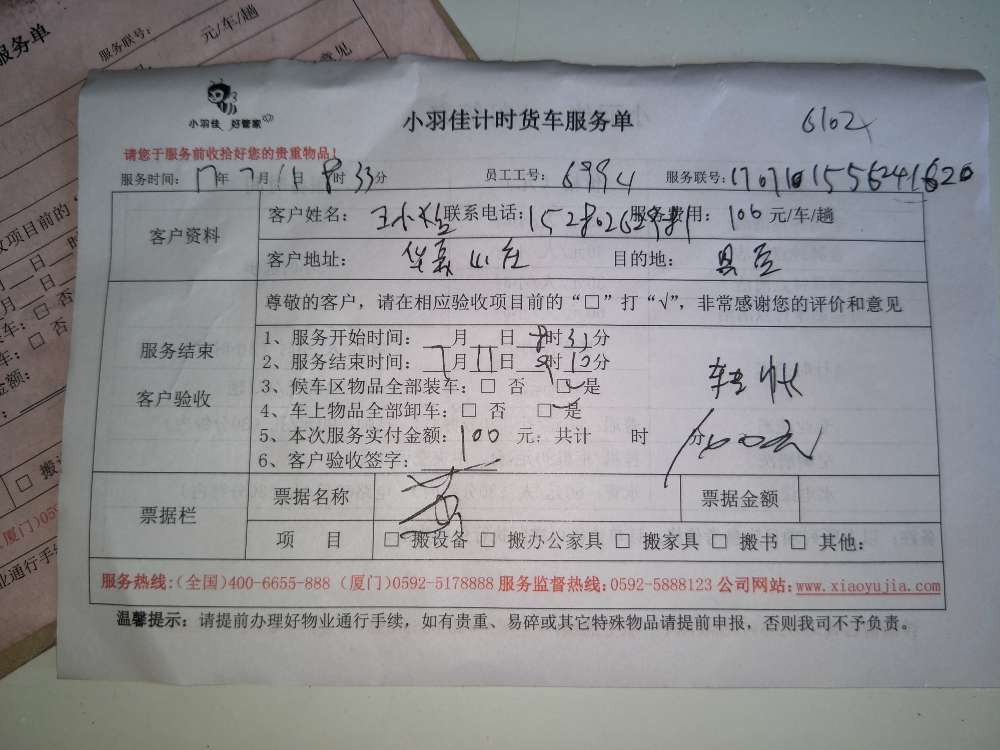 服务单
服务联号:
元/车/趟
小羽佳 好管家
小羽佳计时货车服务单
6102
请您于服务前收拾好您的贵重物品!
服务时间: 17年7月11日8时33分 员工工号: 6994 服务联号:
客户资料
客户姓名: 王小 联系电话: 服务费用: 100 元/车/趟
客户地址: 华 山庄 目的地:
尊敬的客户,请在相应验收项目前的“□”打“√”,非常感谢您的评价和意见
服务结束
客户验收
1、服务开始时间: 月 日 8时33分
2、服务结束时间: 7月11日 9时10分
3、候车区物品全部装车:□ 否 □是
4、车上物品全部卸车:□ 否 □是
5、本次服务实付金额:100 元;共计 时 分
6、客户验收签字:
转帐
100元
票据栏
票据名称
票据金额
项 目
□ 搬设备 □ 搬办公家具 □ 搬家具 □ 搬书 □ 其他:
服务热线:(全国)400-6655-888 (厦门)0592-5178888 服务监督热线:0592-5888123 公司网站:www.xiaoyujia.com
温馨提示:请提前办理好物业通行手续,如有贵重、易碎或其它特殊物品请提前申报,否则我司不予负责。